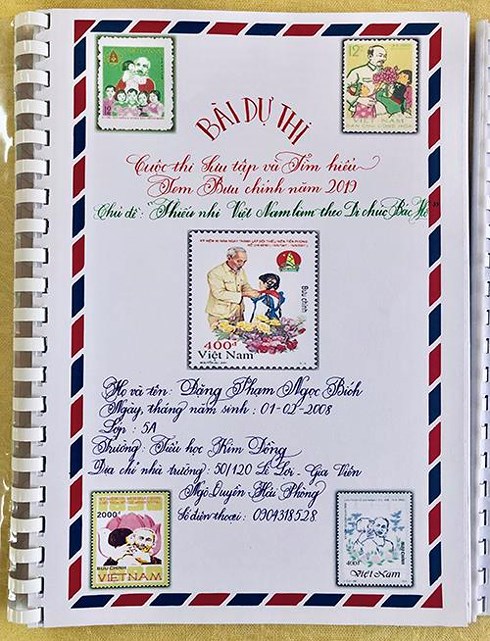 BÀI DỰ THI
Cuộc thi Sưu tập và Tìm hiểu
Tem Bưu chính năm 2019
Chủ đề: "Thiếu nhi Việt Nam làm theo Di chúc Bác Hồ"
Bưu chính
400đ
Việt Nam
Họ và tên: Đặng Phạm Ngọc Bích
Ngày, tháng năm sinh: 01-02-2008
Lớp: 5A
Trường: Tiểu học Kim Đồng
Địa chỉ nhà trường: 50/120 Lê Lợi - Gia Viên
Ngô Quyền Hải Phòng
Số điện thoại: 0904318528
2000đ
BƯU CHÍNH
VIỆT NAM
400đ
Việt Nam